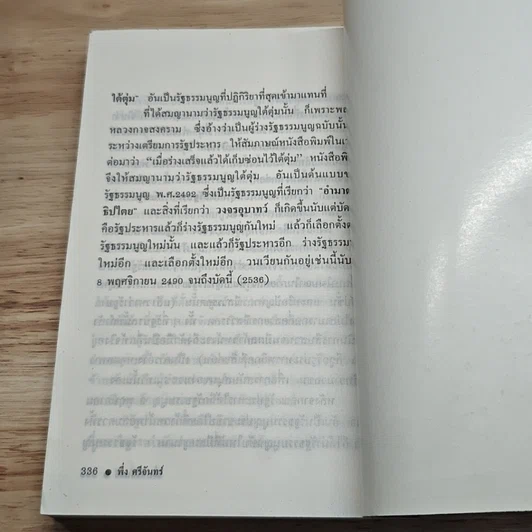 ใต้ตุ่ม" อันเป็นรัฐธรรมนูญที่ปฏิกิริยาที่สุดเข้ามาแทนที่
ที่ได้สมญานามว่ารัฐธรรมนูญใต้ตุ่มนั้น ก็เพราะพล
หลวงกาจสงคราม ซึ่งอ้างว่าเป็นผู้ร่างรัฐธรรมนูญฉบับนั้น
ระหว่างเตรียมการรัฐประหาร ให้สัมภาษณ์หนังสือพิมพ์ใน
ต่อมาว่า "เมื่อร่างเสร็จแล้วได้เก็บซ่อนไว้ใต้ตุ่ม" หนังสือพิ
จึงให้สมญานามว่ารัฐธรรมนูญใต้ตุ่ม อันเป็นต้นแบบข
รัฐธรรมนูญ พ.ศ.2492 ซึ่งเป็นรัฐธรรมนูญที่เรียกว่า "อำมาต
ธิปไตย" และสิ่งที่เรียกว่า วงจรอุบาทว์ ก็เกิดขึ้นนับแต่บัด
คือรัฐประหารแล้วก็ร่างรัฐธรรมนูญกันใหม่ แล้วก็เลือกตั้งต
รัฐธรรมนูญใหม่นั้น และแล้วก็รัฐประหารอีก ร่างรัฐธรรม
ใหม่อีก และเลือกตั้งใหม่อีก วนเวียนกันอยู่เช่นนี้นับ
8 พฤศจิกายน 2490 จนถึงบัดนี้ (2536)
336 ● พึ่ง ศรีจันทร์